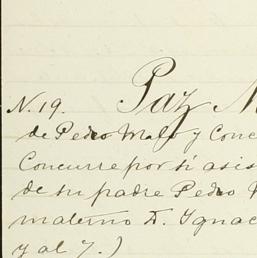 Paz M
N. 19.
de Pedro Malo y Conc
Concurre por sí asis
de su padre Pedro
materno D. Ignac
y al 7.)